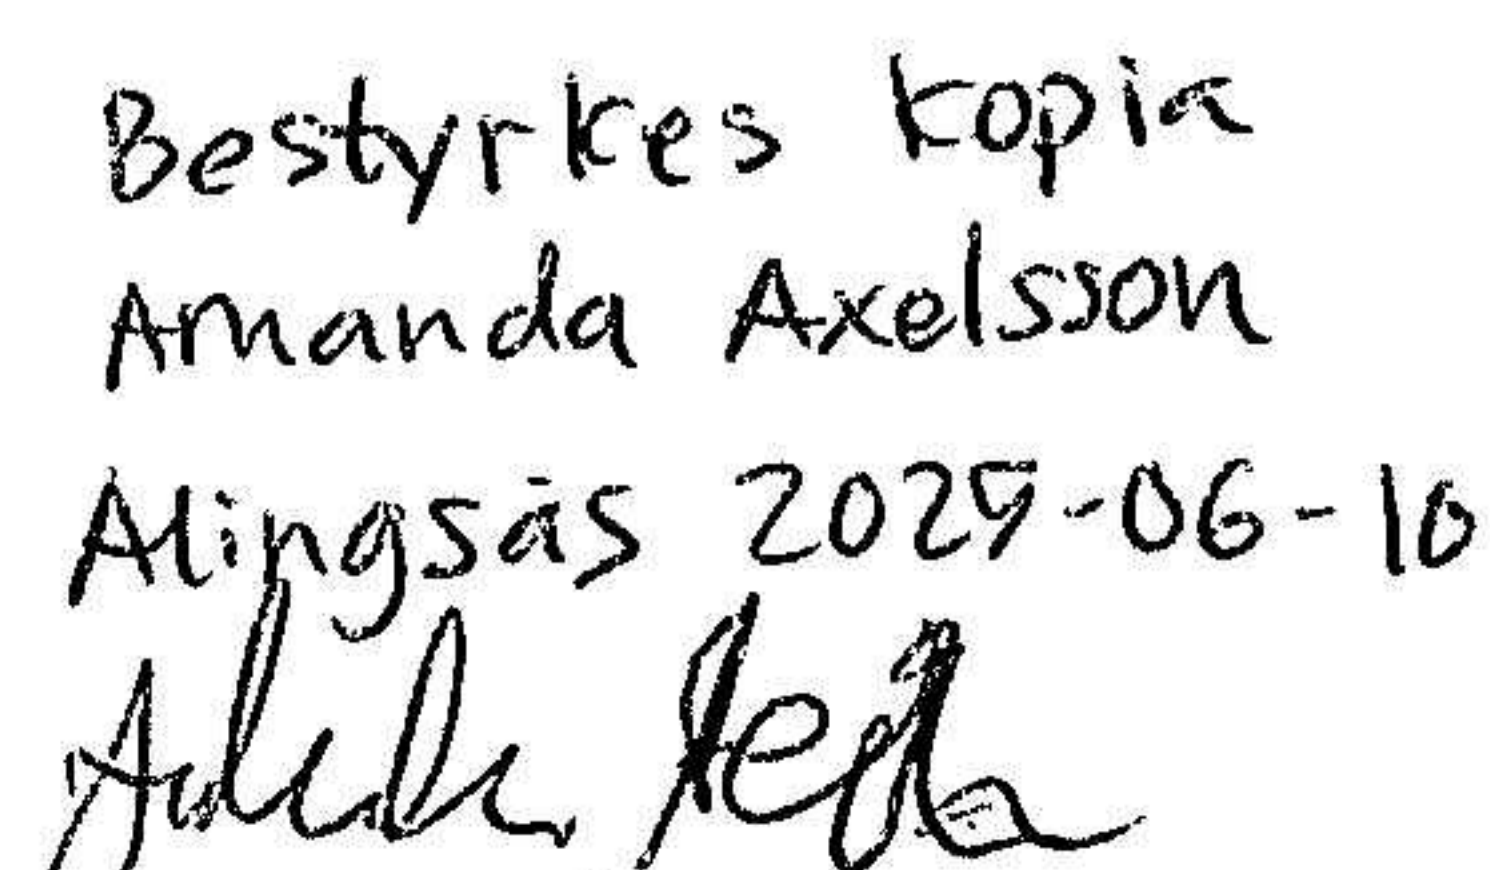 Bestyrkes kopia
Amanda Axelsson
Alingsås 2025-06-10